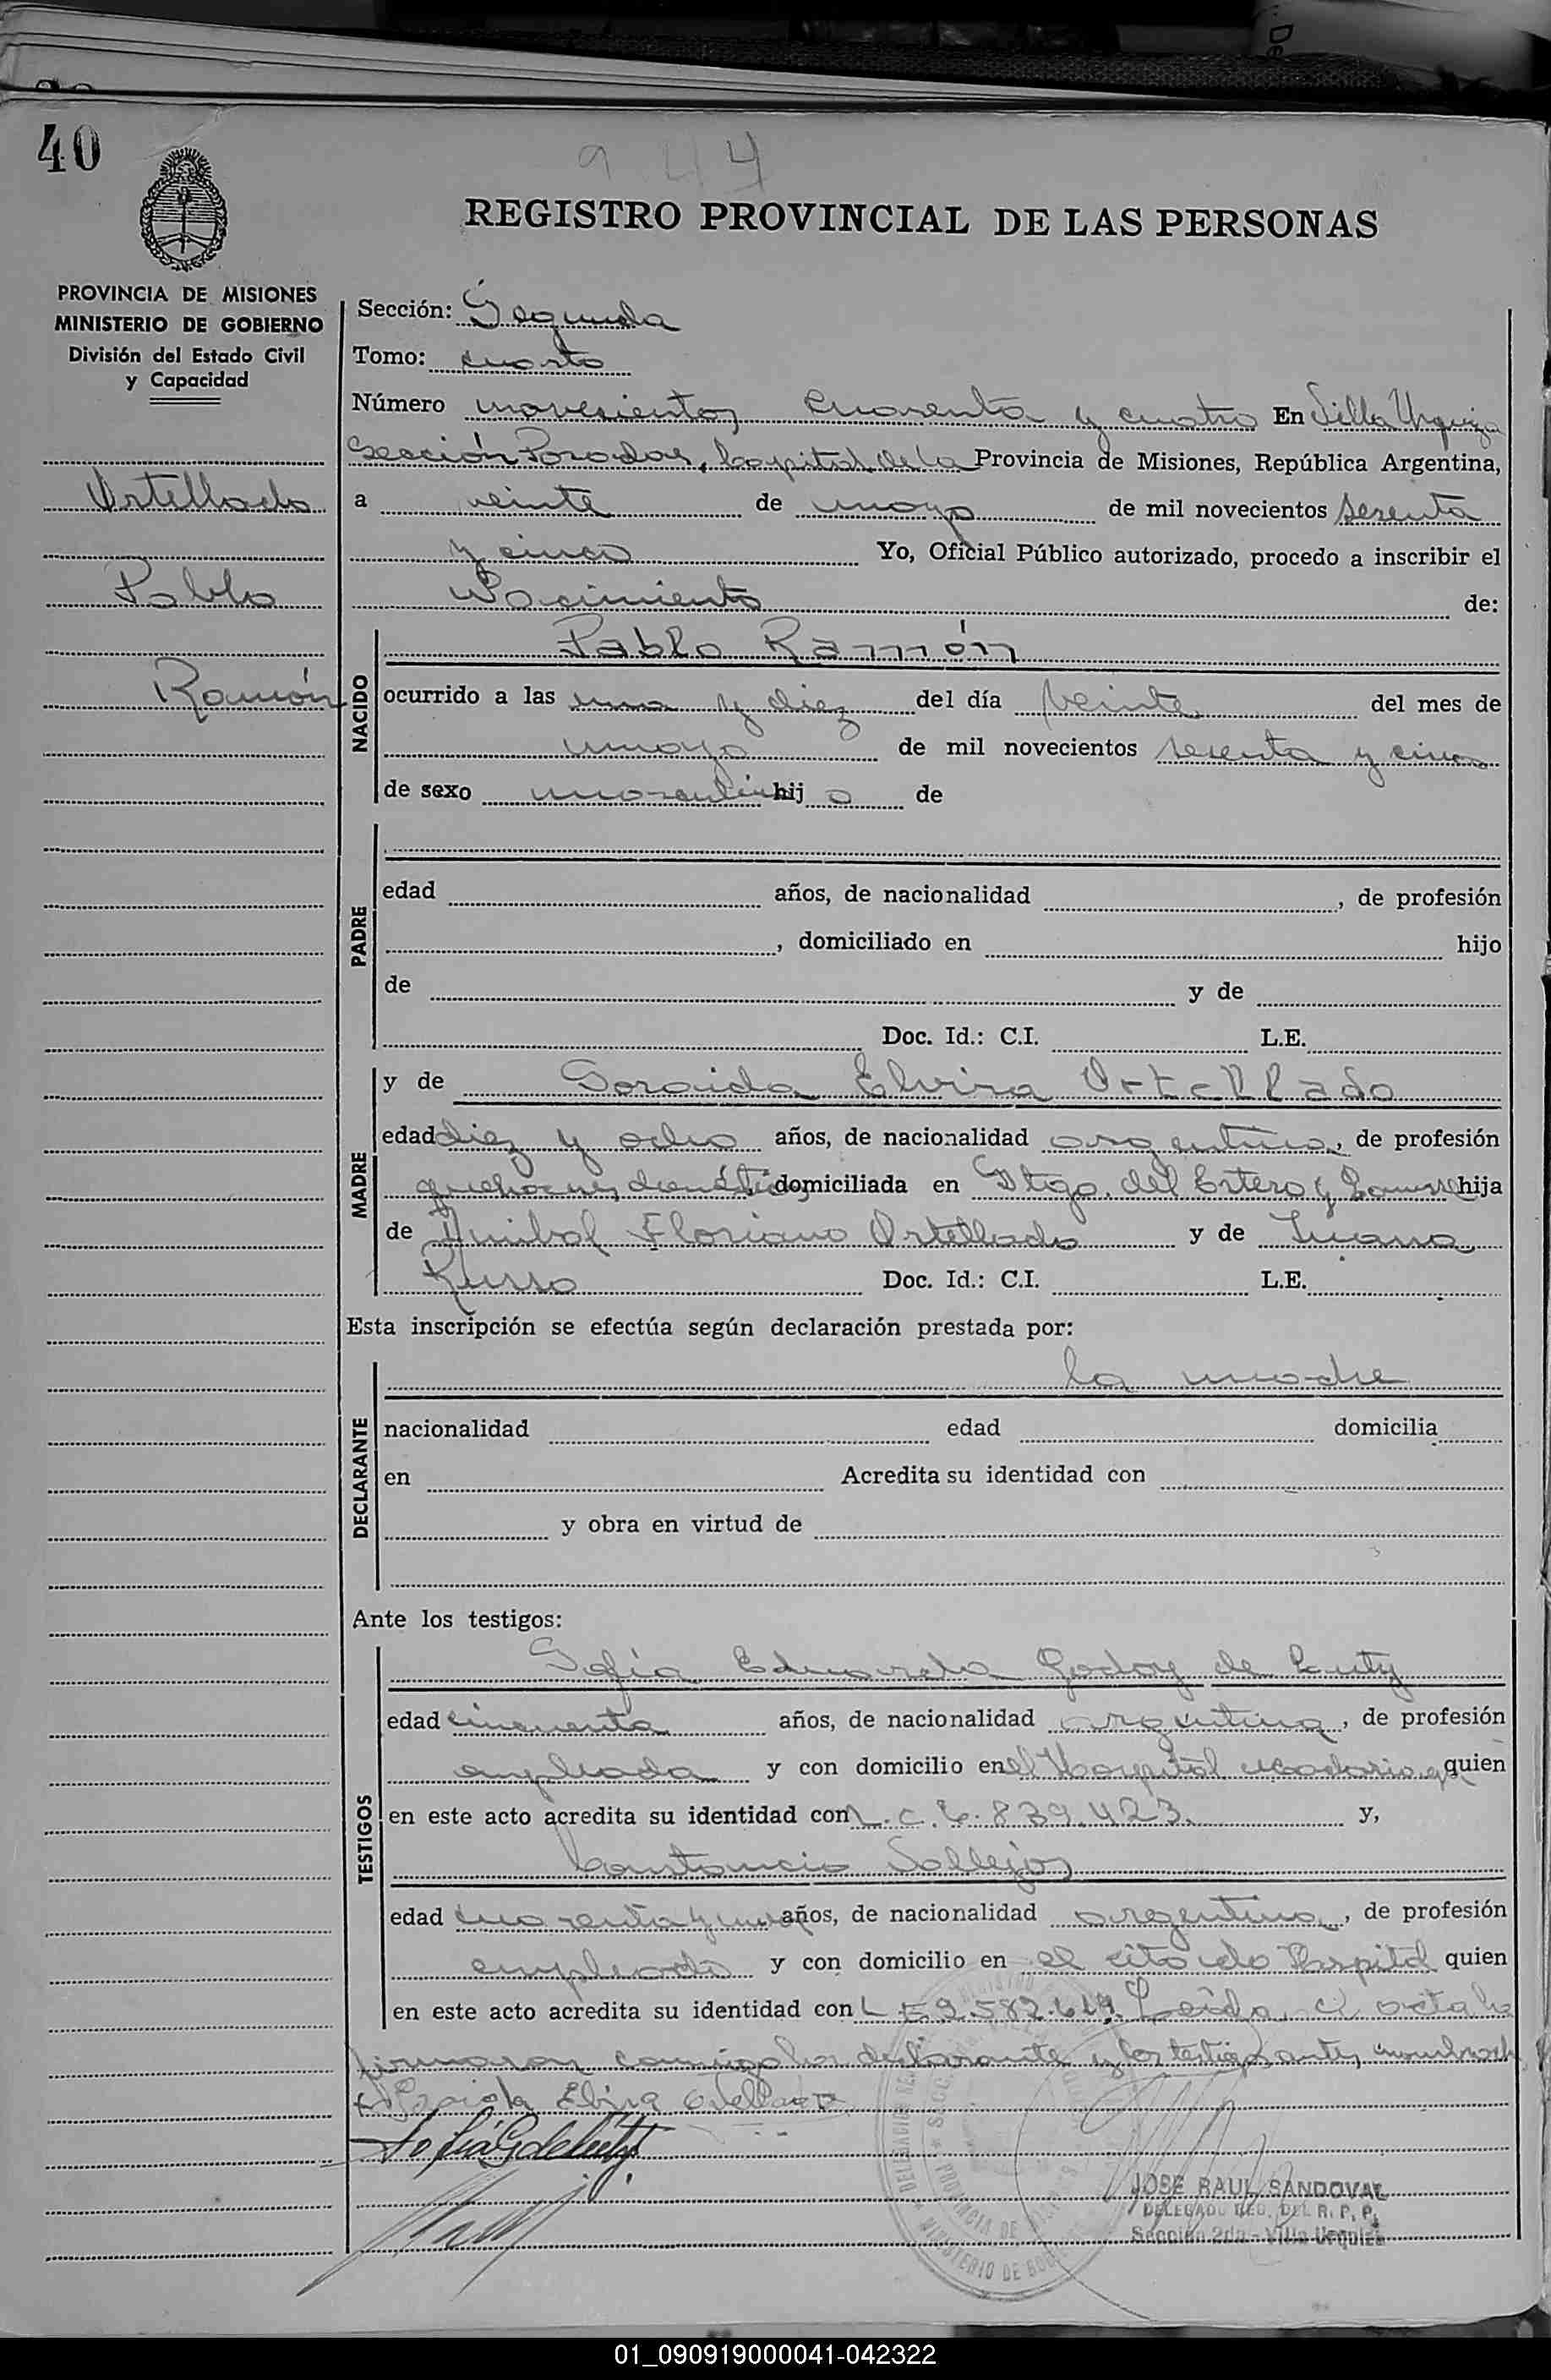 40
944
REGISTRO PROVINCIAL DE LAS PERSONAS
PROVINCIA DE MISIONES
MINISTERIO DE GOBIERNO
División del Estado Civil
y Capacidad
Ortellado
Pablo
Ramón
Sección: Segunda
Tomo: cuarto
Número novecientos cuarenta y cuatro En Villa Urquiza
Sección Posadas, Capital de la Provincia de Misiones, República Argentina,
a veinte de mayo de mil novecientos sesenta
y cinco Yo, Oficial Público autorizado, procedo a inscribir el
Nacimiento de:
NACIDO
Pablo Ramón
ocurrido a las una y diez del día veinte del mes de
mayo de mil novecientos sesenta y cinco
de sexo masculino hijo de
PADRE
edad años, de nacionalidad , de profesión
, domiciliado en hijo
de y de
Doc. Id.: C.I. L.E.
MADRE
y de Soraida Elvira Ortellado
edad diez y ocho años, de nacionalidad argentina, de profesión
quehaceres domésticos domiciliada en Stgo. del Estero y hija
de Anibal Floriano Ortellado y de Juana
Russo Doc. Id.: C.I. L.E.
Esta inscripción se efectúa según declaración prestada por:
DECLARANTE
la madre
nacionalidad edad domicilia
en Acredita su identidad con
y obra en virtud de
Ante los testigos:
TESTIGOS
Sofía Eduarda Godoy de Luty
edad cincuenta años, de nacionalidad argentina, de profesión
empleada y con domicilio en el Hospital Madariaga quien
en este acto acredita su identidad con L.C. 6.839.423. y,
Constancio Vallejos
edad cuarenta y años, de nacionalidad argentino, de profesión
empleado y con domicilio en el citado Hospital quien
en este acto acredita su identidad con L E 2.582.619. Leída el acta la
firmaron conmigo la declarante y los testigos antes nombrados
Elvira Ortellado
Sofía G de Luty
JOSE RAUL SANDOVAL
DELEGADO REG. DEL R. P. P.
Sección 2da - Villa Urquiza
MINISTERIO DE GOBIERNO
01_090919000041-042322